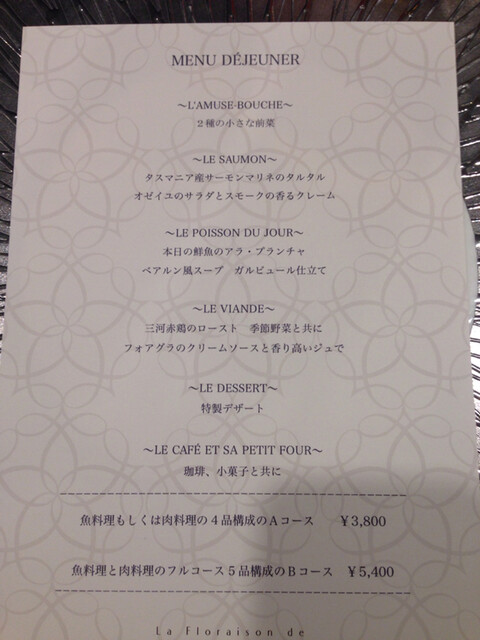 MENU DÉJEUNER
～L'AMUSE-BOUCHE～
２種の小さな前菜
～LE SAUMON～
タスマニア産サーモンマリネのタルタル
オゼイユのサラダとスモークの香るクレーム
～LE POISSON DU JOUR～
本日の鮮魚のアラ・プランチャ
ベアルン風スープ　ガルビュール仕立て
～LE VIANDE～
三河赤鶏のロースト　季節野菜と共に
フォアグラのクリームソースと香り高いジュで
～LE DESSERT～
特製デザート
～LE CAFÉ ET SA PETIT FOUR～
珈琲、小菓子と共に
魚料理もしくは肉料理の４品構成のＡコース　￥3,800
魚料理と肉料理のフルコース５品構成のＢコース　￥5,400
La Floraison de